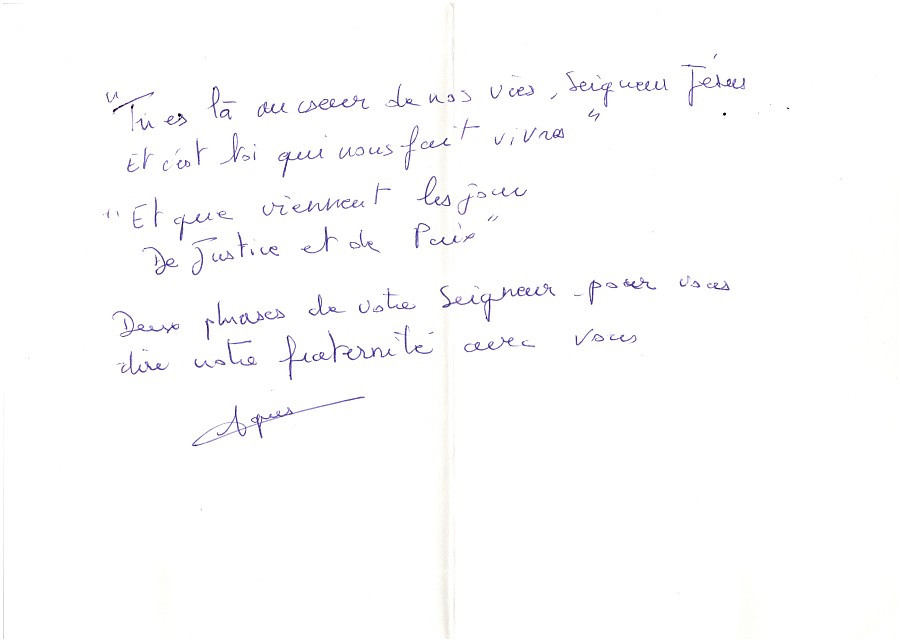 "Tu es là au coeur de nos vies, Seigneur Jésus
Et c'est toi qui nous fait vivres"
"Et que viennent les jour
De Justice et de Paix"
Deux phrases de votre Seigneur - pour vous
dire notre fraternité avec vous
Agnes